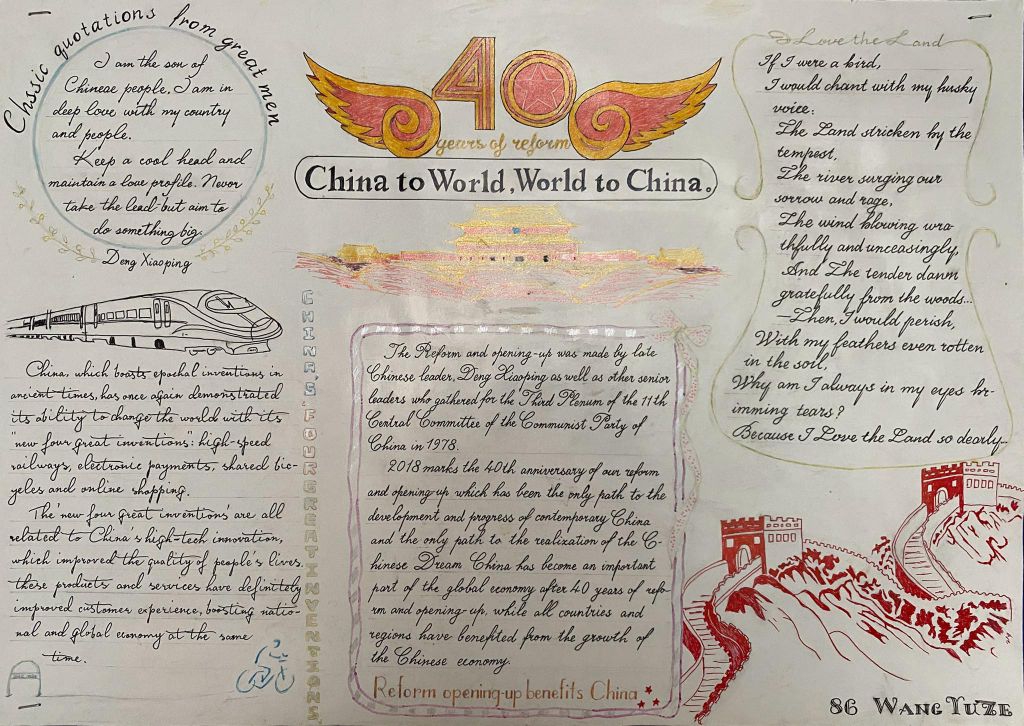 Chssic quotations from great men
I am the son of
Chinese people, I am in
deep love with my country
and people.
Keep a cool head and
maintain a low profile. Never
take the lead-but aim to
do something big.
Deng Xiaoping
40
years of reform
China to World, World to China.
I Love the Land
If I were a bird,
I would chant with my husky
voice:
The Land stricken by the
tempest,
The river surging our
sorrow and rage,
The wind blowing wra-
thfully and unceasingly,
And The tender dawn
gratefully from the woods...
—Then, I would perish,
With my feathers even rotten
in the soil,
Why am I always in my eyes br-
imming tears?
Because I Love the Land so dearly...
China, which boasts epochal inventions in
ancient times, has once again demonstrated
its ability to change the world with its
"new four great inventions": high-speed
railways, electronic payments, shared bic-
ycles and online shopping.
The 'new four great inventions' are all
related to China's high-tech innovation,
which improved the quality of people's lives.
these products and services have definitely
improved customer experience, boosting natio-
nal and global economy at the same
time.
CHINA'S FOUR GREAT INVENTIONS
The Reform and opening-up was made by late
Chinese leader, Deng Xiaoping as well as other senior
leaders who gathered for the Third Plenum of the 11th
Central Committee of the Communist Party of
China in 1978.
2018 marks the 40th anniversary of our reform
and opening-up which has been the only path to the
development and progress of contemporary China
and the only path to the realization of the C-
hinese Dream China has become an important
part of the global economy after 40 years of refo-
rm and opening-up, while all countries and
regions have benefited from the growth of
the Chinese economy.
Reform opening-up benefits China
86 WANG YUZE